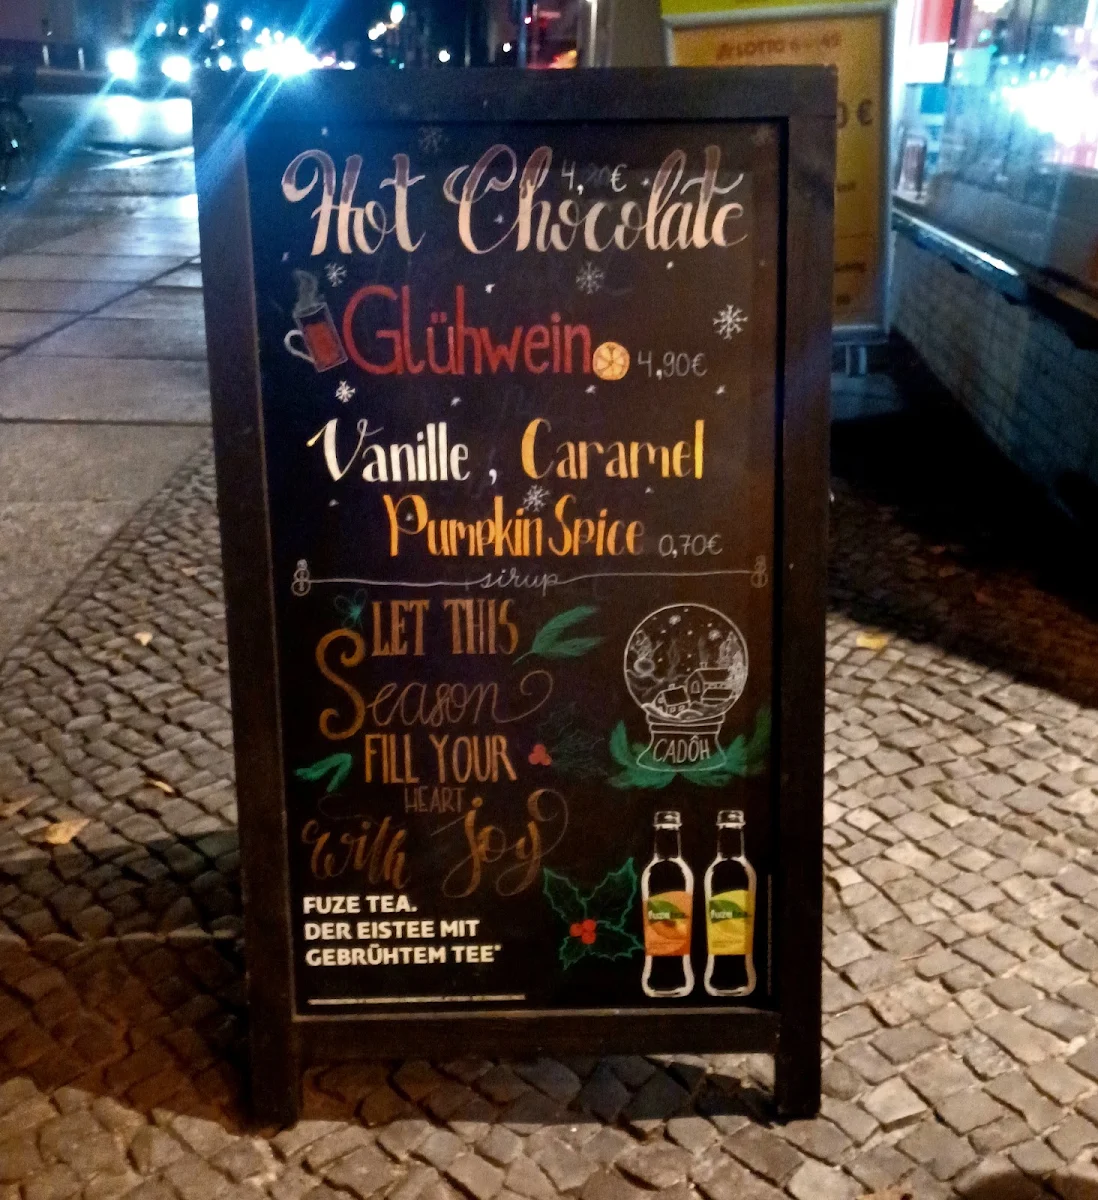 LOTTO 6 aus 49
€
Hot Chocolate
4, €
Glühwein 4,90€
Vanille, Caramel
Pumpkin Spice 0,70€
sirup
LET THIS
Season
FILL YOUR
HEART
with joy
CADÔH
FUZE TEA.
DER EISTEE MIT
GEBRÜHTEM TEE*
fuze tea fuze tea